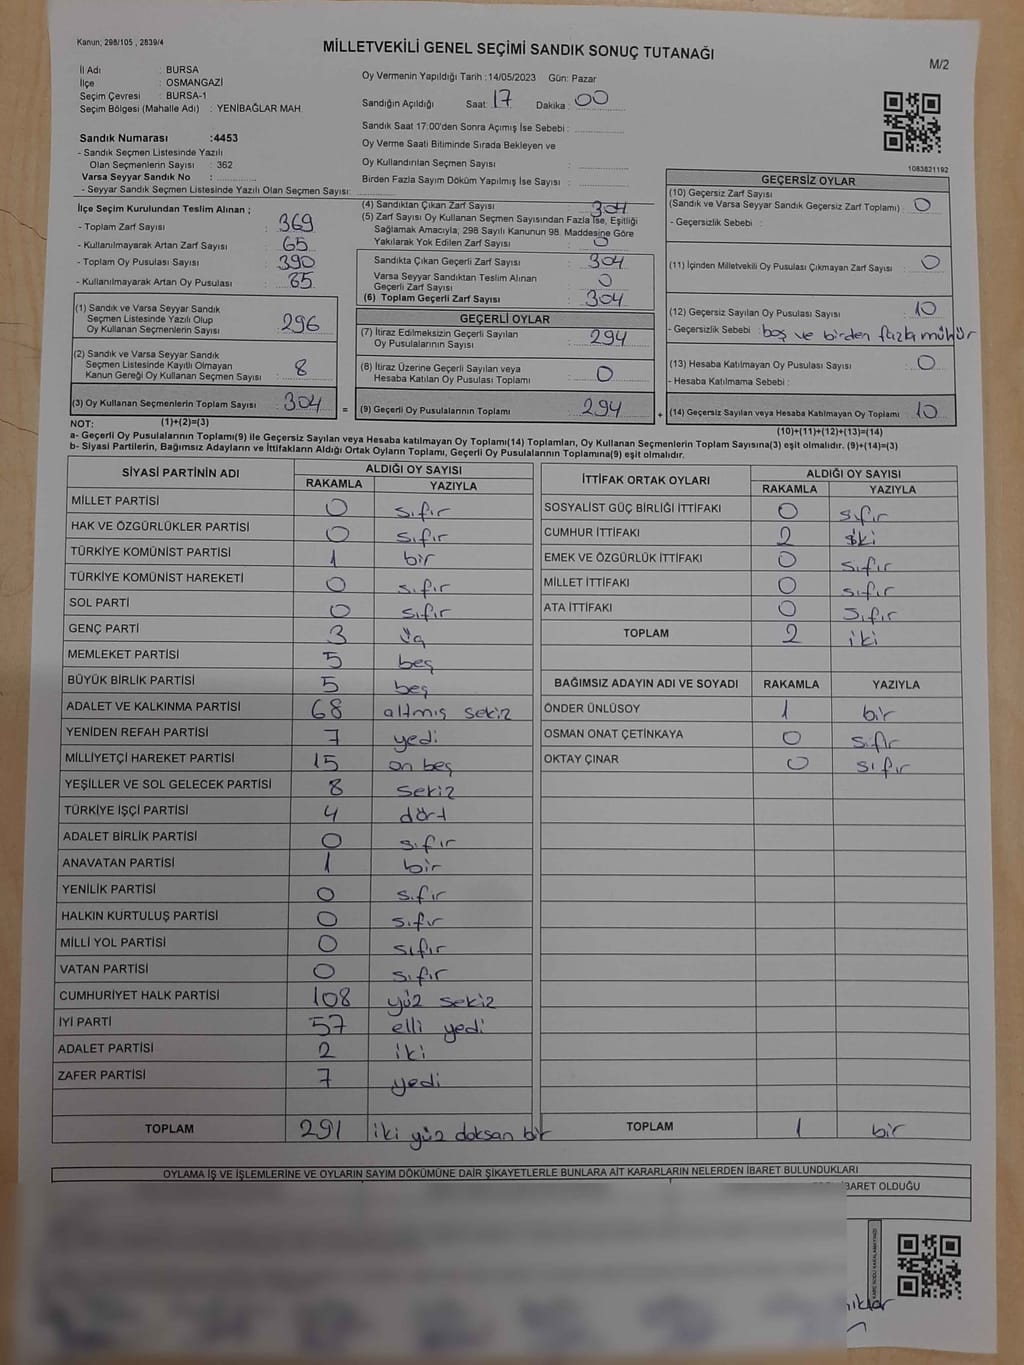 Kanun; 298/105 , 2839/4
MİLLETVEKİLİ GENEL SEÇİMİ SANDIK SONUÇ TUTANAĞI
M/2
İl Adı : BURSA
İlçe : OSMANGAZİ
Seçim Çevresi : BURSA-1
Seçim Bölgesi (Mahalle Adı) : YENİBAĞLAR MAH.
Oy Vermenin Yapıldığı Tarih :14/05/2023 Gün: Pazar
Sandığın Açıldığı Saat: 17 Dakika : 00
Sandık Saat 17:00'den Sonra Açımış İse Sebebi :
Oy Verme Saati Bitiminde Sırada Bekleyen ve
Oy Kullandırılan Seçmen Sayısı :
Birden Fazla Sayım Döküm Yapılmış İse Sayısı :
Sandık Numarası :4453
- Sandık Seçmen Listesinde Yazılı
Olan Seçmenlerin Sayısı : 362
Varsa Seyyar Sandık No :
- Seyyar Sandık Seçmen Listesinde Yazılı Olan Seçmen Sayısı:
1083821192
İlçe Seçim Kurulundan Teslim Alınan ;
- Toplam Zarf Sayısı : 369
- Kullanılmayarak Artan Zarf Sayısı : 65
- Toplam Oy Pusulası Sayısı : 390
- Kullanılmayarak Artan Oy Pusulası : 85
(1) Sandık ve Varsa Seyyar Sandık
Seçmen Listesinde Yazılı Olup
Oy Kullanan Seçmenlerin Sayısı : 296
(2) Sandık ve Varsa Seyyar Sandık
Seçmen Listesinde Kayıtlı Olmayan
Kanun Gereği Oy Kullanan Seçmen Sayısı : 8
(3) Oy Kullanan Seçmenlerin Toplam Sayısı : 304
(1)+(2)=(3)
(4) Sandıktan Çıkan Zarf Sayısı : 304
(5) Zarf Sayısı Oy Kullanan Seçmen Sayısından Fazla İse, Eşitliği
Sağlamak Amacıyla; 298 Sayılı Kanunun 98. Maddesine Göre
Yakılarak Yok Edilen Zarf Sayısı : 0
Sandıkta Çıkan Geçerli Zarf Sayısı : 304
Varsa Seyyar Sandıktan Teslim Alınan
Geçerli Zarf Sayısı : 0
(6) Toplam Geçerli Zarf Sayısı : 304
GEÇERLİ OYLAR
(7) İtiraz Edilmeksizin Geçerli Sayılan
Oy Pusulalarının Sayısı : 294
(8) İtiraz Üzerine Geçerli Sayılan veya
Hesaba Katılan Oy Pusulası Toplamı : 0
= (9) Geçerli Oy Pusulalarının Toplamı : 294
GEÇERSİZ OYLAR
(10) Geçersiz Zarf Sayısı
(Sandık ve Varsa Seyyar Sandık Geçersiz Zarf Toplamı) : 0
- Geçersizlik Sebebi :
(11) İçinden Milletvekili Oy Pusulası Çıkmayan Zarf Sayısı : 0
(12) Geçersiz Sayılan Oy Pusulası Sayısı : 10
- Geçersizlik Sebebi : boş ve birden fazla mühür
(13) Hesaba Katılmayan Oy Pusulası Sayısı : 0
- Hesaba Katılmama Sebebi :
+ (14) Geçersiz Sayılan veya Hesaba Katılmayan Oy Toplamı : 10
(10)+(11)+(12)+(13)=(14)
NOT:
a- Geçerli Oy Pusulalarının Toplamı(9) ile Geçersiz Sayılan veya Hesaba katılmayan Oy Toplamı(14) Toplamları, Oy Kullanan Seçmenlerin Toplam Sayısına(3) eşit olmalıdır. (9)+(14)=(3)
b- Siyasi Partilerin, Bağımsız Adayların ve İttifakların Aldığı Ortak Oyların Toplamı, Geçerli Oy Pusulalarının Toplamına(9) eşit olmalıdır.
SİYASİ PARTİNİN ADI ALDIĞI OY SAYISI
RAKAMLA YAZIYLA
MİLLET PARTİSİ 0 sıfır
HAK VE ÖZGÜRLÜKLER PARTİSİ 0 sıfır
TÜRKİYE KOMÜNİST PARTİSİ 1 bir
TÜRKİYE KOMÜNİST HAREKETİ 0 sıfır
SOL PARTİ 0 sıfır
GENÇ PARTİ 3 üç
MEMLEKET PARTİSİ 5 beş
BÜYÜK BİRLİK PARTİSİ 5 beş
ADALET VE KALKINMA PARTİSİ 68 altmış sekiz
YENİDEN REFAH PARTİSİ 7 yedi
MİLLİYETÇİ HAREKET PARTİSİ 15 on beş
YEŞİLLER VE SOL GELECEK PARTİSİ 8 sekiz
TÜRKİYE İŞÇİ PARTİSİ 4 dört
ADALET BİRLİK PARTİSİ 0 sıfır
ANAVATAN PARTİSİ 1 bir
YENİLİK PARTİSİ 0 sıfır
HALKIN KURTULUŞ PARTİSİ 0 sıfır
MİLLİ YOL PARTİSİ 0 sıfır
VATAN PARTİSİ 0 sıfır
CUMHURİYET HALK PARTİSİ 108 yüz sekiz
İYİ PARTİ 57 elli yedi
ADALET PARTİSİ 2 iki
ZAFER PARTİSİ 7 yedi
TOPLAM 291 iki yüz doksan bir
İTTİFAK ORTAK OYLARI ALDIĞI OY SAYISI
RAKAMLA YAZIYLA
SOSYALİST GÜÇ BİRLİĞİ İTTİFAKI 0 sıfır
CUMHUR İTTİFAKI 2 iki
EMEK VE ÖZGÜRLÜK İTTİFAKI 0 sıfır
MİLLET İTTİFAKI 0 sıfır
ATA İTTİFAKI 0 sıfır
TOPLAM 2 iki
BAĞIMSIZ ADAYIN ADI VE SOYADI RAKAMLA YAZIYLA
ÖNDER ÜNLÜSOY 1 bir
OSMAN ONAT ÇETİNKAYA 0 sıfır
OKTAY ÇINAR 0 sıfır
TOPLAM 1 bir
OYLAMA İŞ VE İŞLEMLERİNE VE OYLARIN SAYIM DÖKÜMÜNE DAİR ŞİKAYETLERLE BUNLARA AİT KARARLARIN NELERDEN İBARET BULUNDUKLARI
İBARET OLDUĞU